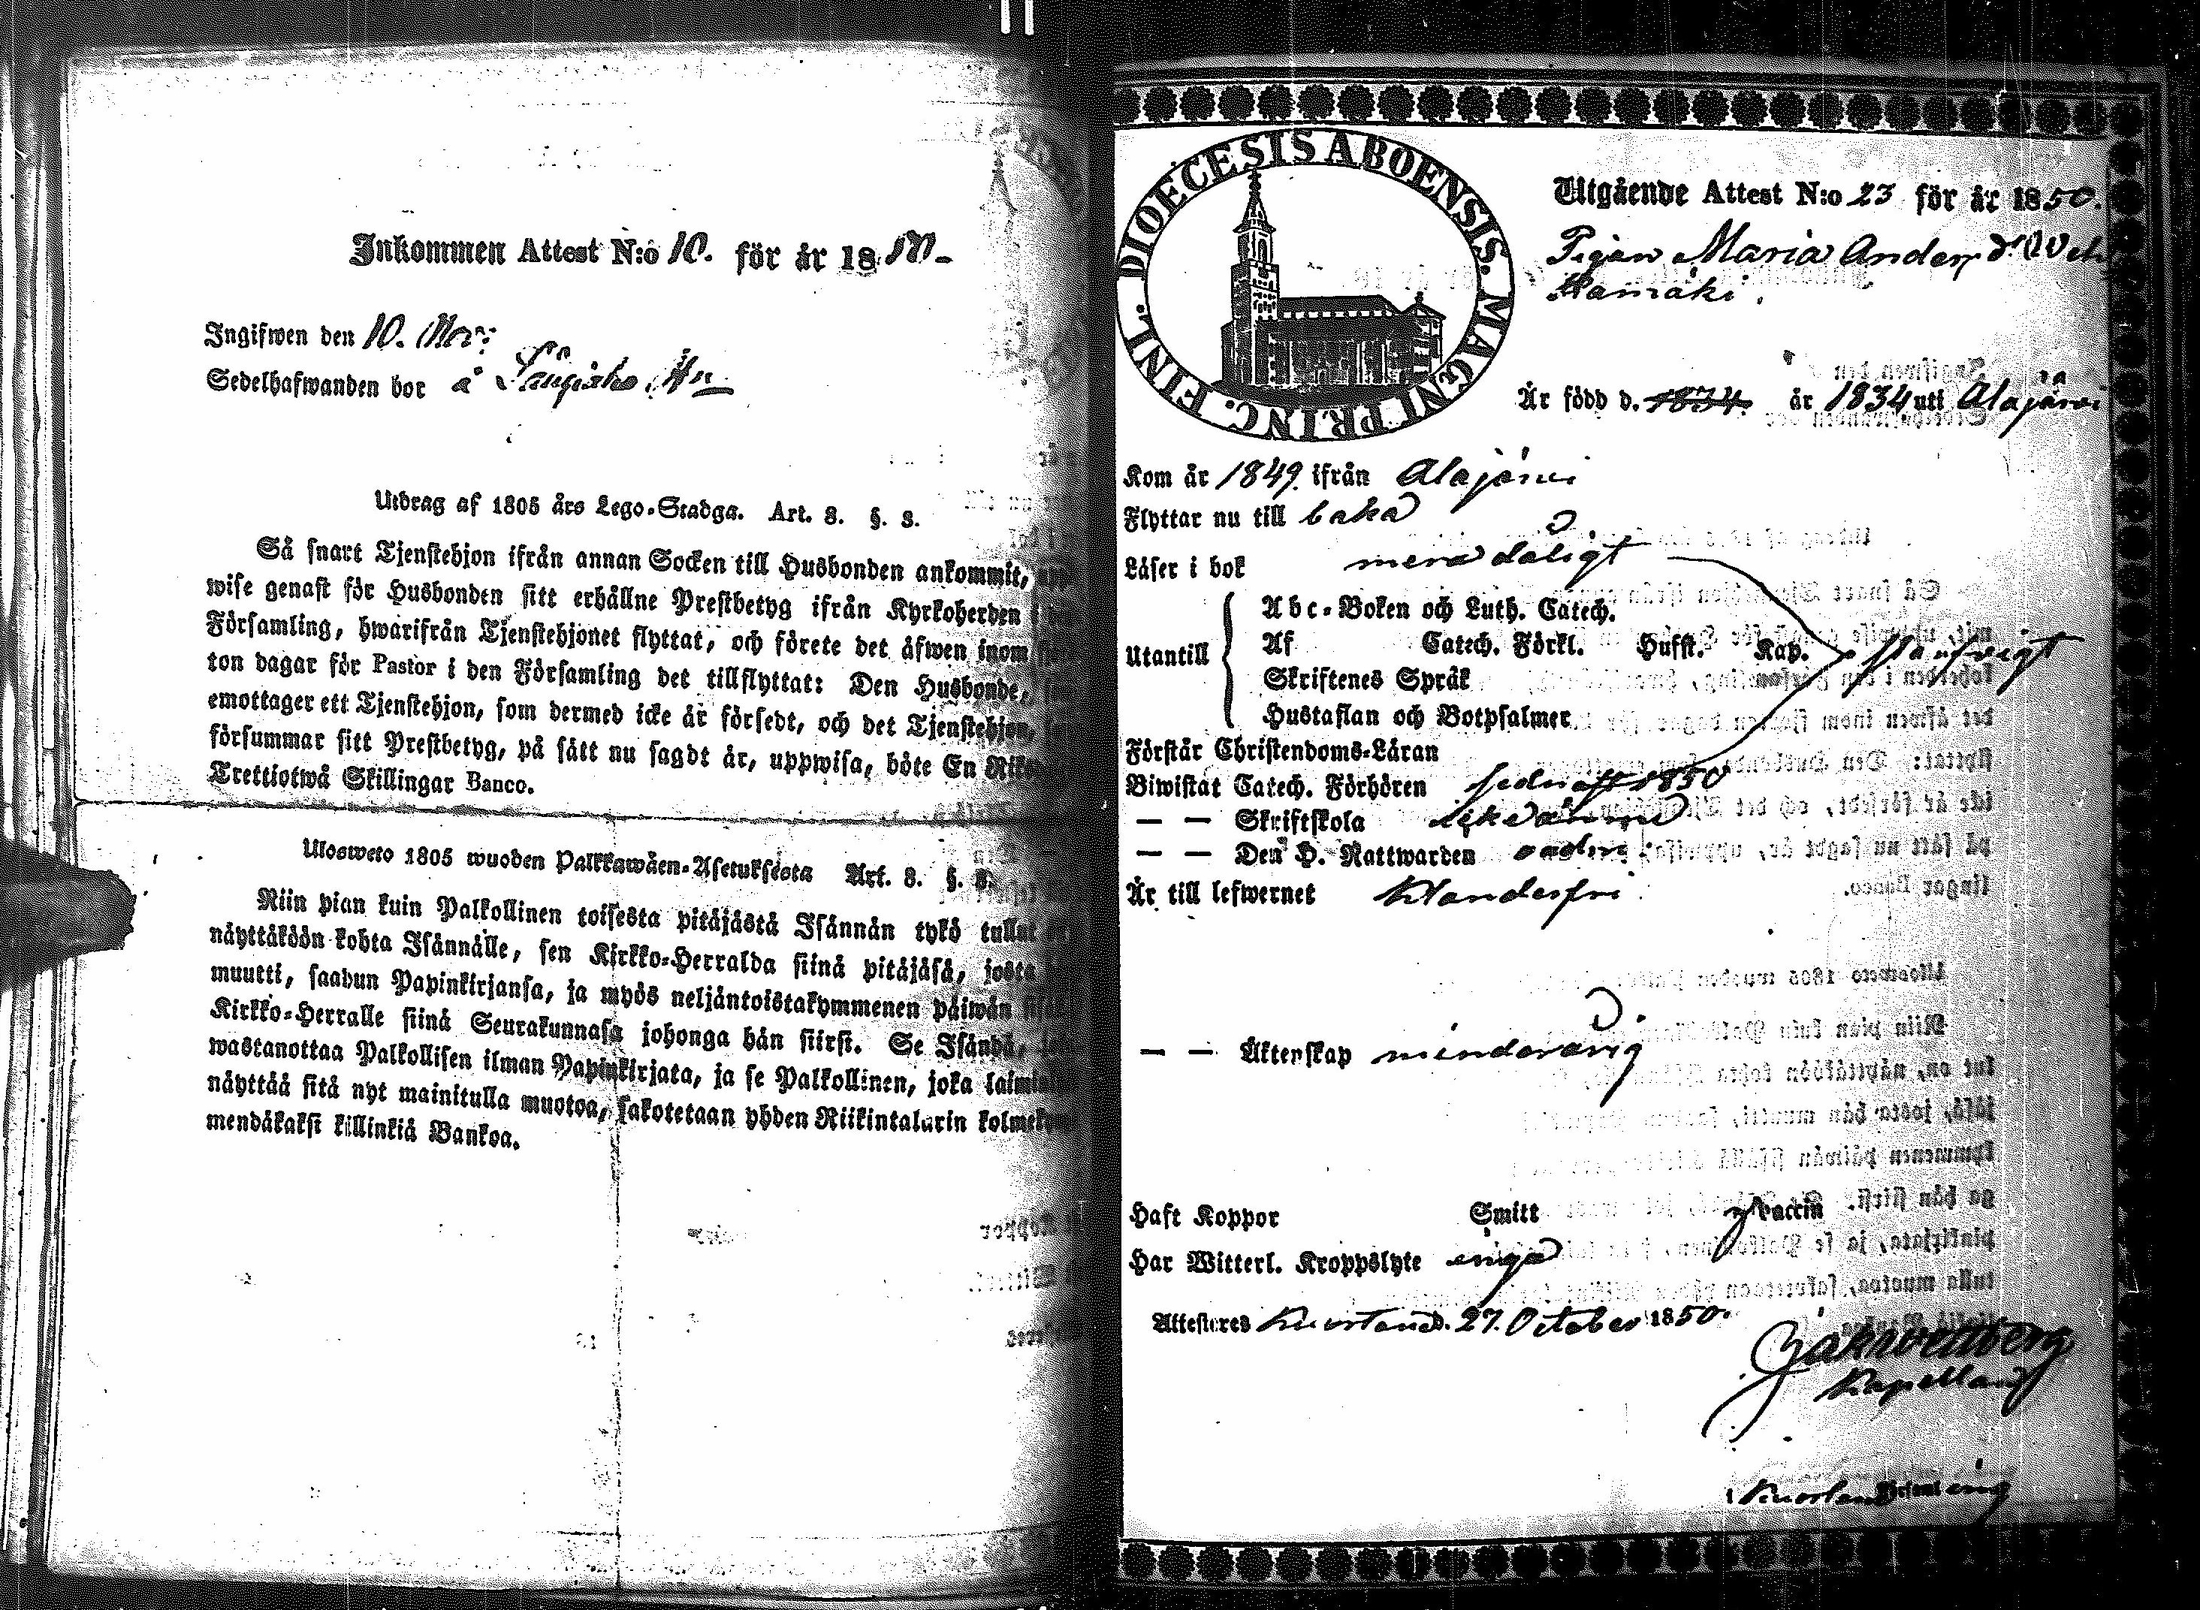 Inkommen Attest N:o 10. för år 1850
Ingifwen den 10. Nov:
Sedelhafwanden bor å
Utdrag af 1805 års Lego-Stadga. Art. 8. §. 3.
Så snart Tjenstehjon ifrån annan Socken till Husbonden ankommit,
wise genast för Husbonden sitt erhållne Prestbetyg ifrån Kyrkoherden i
Församling, hwarifrån Tjenstehjonet flyttat, och förete det äfwen inom
ton dagar för Pastor i den Församling det tillflyttat: Den Husbonde,
emottager ett Tjenstehjon, som dermed icke är försedt, och det Tjenstehjon,
försummar sitt Prestbetyg, på sätt nu sagdt är, uppwisa, böte En
Trettiotwå Skillingar Banco.
Ulosweto 1805 wuoden Palkkawäen-Asetuksesta Art. 8. §. 3.
Niin pian kuin Palkollinen toisesta pitäjästä Isännän tykö tullut
näyttäköön kohta Isännälle, sen Kirkko-Herralda siinä pitäjäsä, josta
muutti, saadun Papinkirjansa, ja myös neljäntoistakymmenen päiwän
Kirkko-Herralle siinä Seurakunnasa johonga hän siirsi. Se Isändä,
wastanottaa Palkollisen ilman Papinkirjata, ja se Palkollinen, joka
näyttää sitä nyt mainitulla muotoa, sakotetaan yhden Riikintalarin
mendäkaksi killinkiä Bankoa.
DIOECESIS ABOENSIS. MAGNI PRINC. FINL.
Utgående Attest N:o 23 för år 1850.
Pigan Maria Anders d:
Är född d. 1834. år 1834 uti Alajärvi
Kom år 1849. ifrån Alajärvi
Flyttar nu till baka
Läser i bok mera dåligt
Utantill
Abc-Boken och Luth. Catech.
Af Catech. Förkl. Hufst. Kap.
Skriftenes Språk
Hustaflan och Botpsalmer
Förstår Christendoms-Läran
Biwistat Catech. Förhören sednast 1850
— — Skriftskola
— — Den H. Nattwarden
Är till lefwernet klanderfri
— — Äktenskap minderårig
Haft Koppor Smitt Vaccin
Har Witterl. Kroppslyte inga
Attesteres Kuortane d. 27. October 1850.
Kapellan